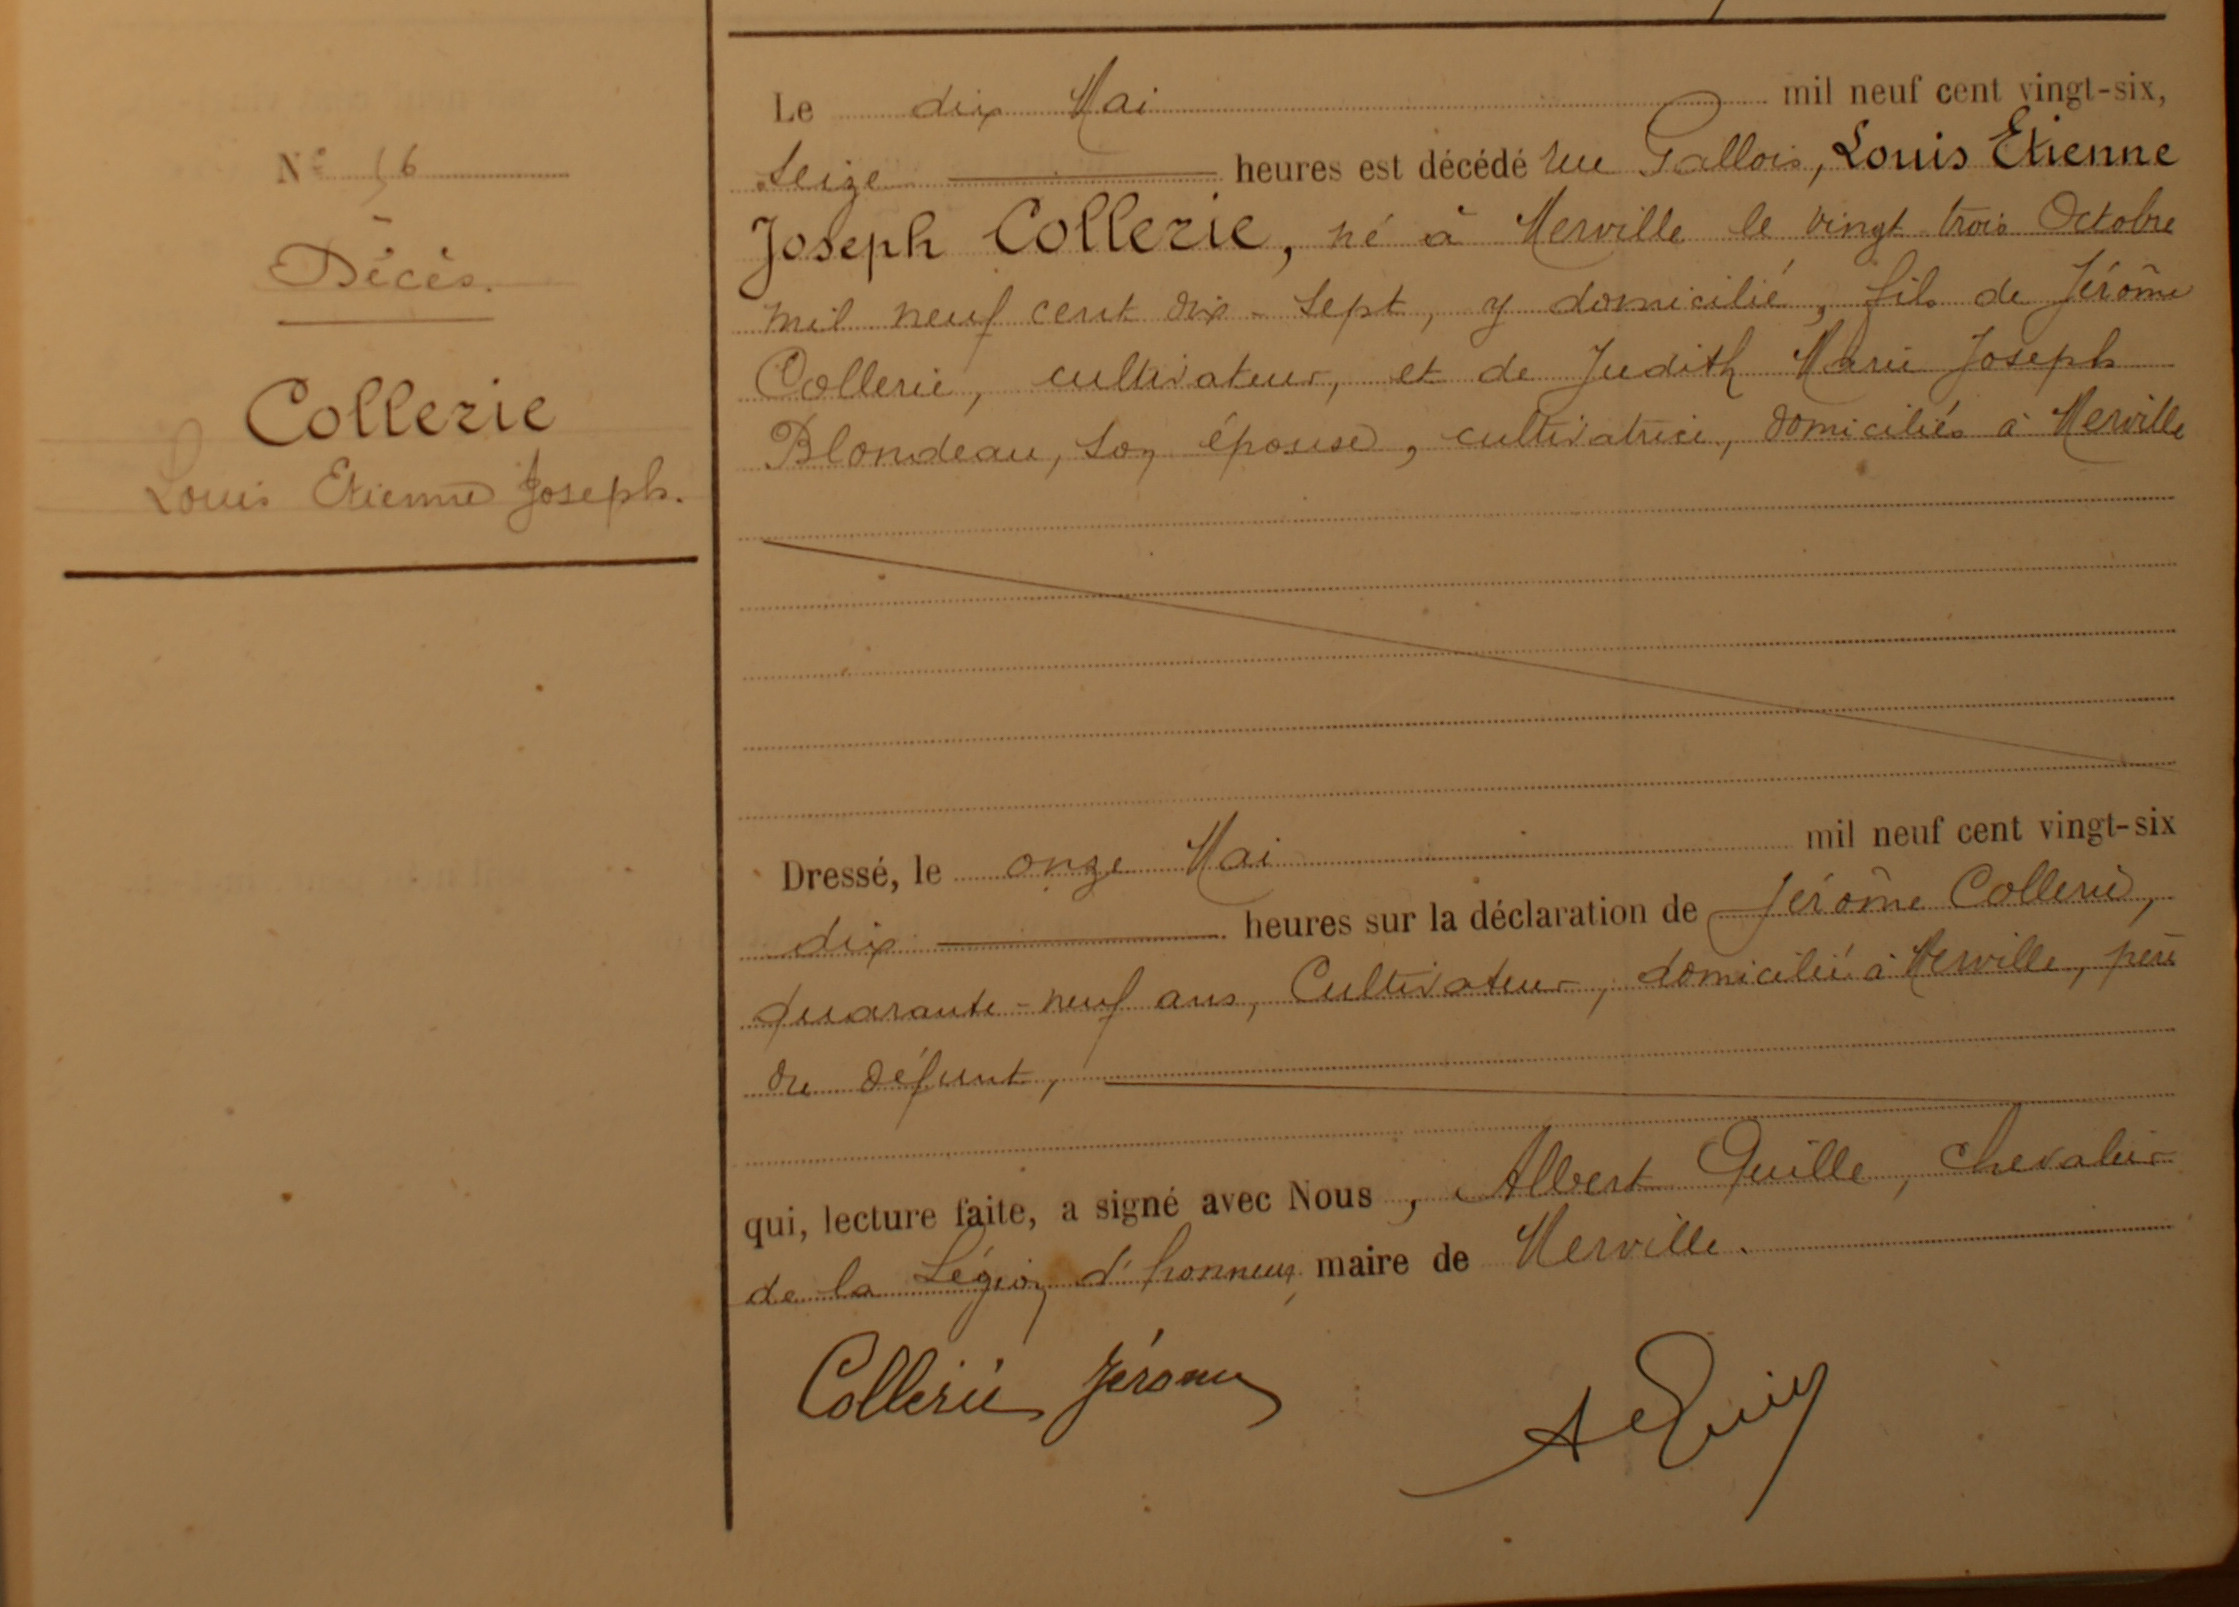 N° 56
Décès.
Collerie
Louis Etienne Joseph.
Le dix Mai mil neuf cent vingt-six,
seize heures est décédé rue Gallois, Louis Etienne
Joseph Collerie, né à Merville le vingt trois Octobre
mil neuf cent dix-sept, y domicilié, fils de Jérôme
Collerie, cultivateur, et de Judith Marie Joseph
Blondeau, son épouse, cultivatrice, domiciliés à Merville
Dressé, le onze Mai mil neuf cent vingt-six
dix heures sur la déclaration de Jérôme Collerie,
quarante-neuf ans, Cultivateur, domicilié à Merville, père
du défunt,
qui, lecture faite, a signé avec Nous, Albert Quille, chevalier
de la Légion d'honneur, maire de Merville.
Collerie Jérome